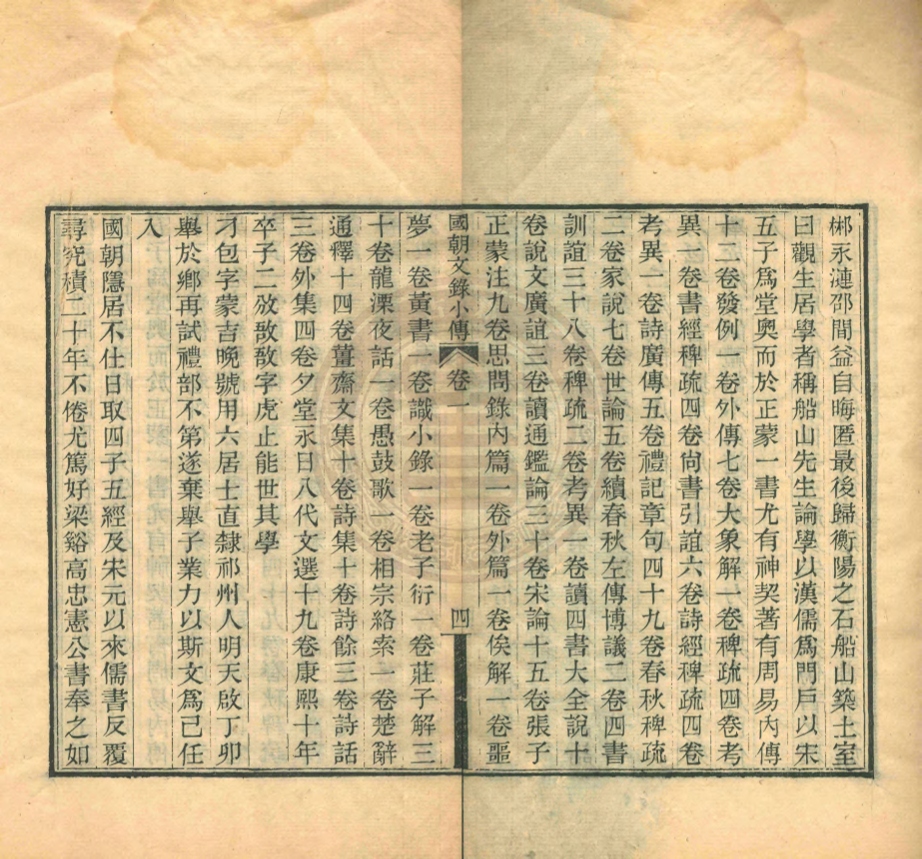 郴永漣邵間益自晦匿最後歸衡陽之石船山築土室
曰觀生居學者稱船山先生論學以漢儒爲門戶以宋
五子爲堂奧而於正蒙一書尤有神契著有周易內傳
十二卷發例一卷外傳七卷大象解一卷稗疏四卷考
異一卷書經稗疏四卷尙書引誼六卷詩經稗疏四卷
考異一卷詩廣傳五卷禮記章句四十九卷春秋稗疏
二卷家說七卷世論五卷續春秋左傳博議二卷四書
訓誼三十八卷稗疏二卷考異一卷讀四書大全說十
卷說文廣誼三卷讀通鑑論三十卷宋論十五卷張子
正蒙注九卷思問錄內篇一卷外篇一卷俟解一卷噩
國朝文錄小傳 卷一 四
夢一卷黃書一卷識小錄一卷老子衍一卷莊子解三
十卷龍溧夜話一卷愚鼓歌一卷相宗絡索一卷楚辭
通釋十四卷薑齋文集十卷詩集十卷詩餘三卷詩話
三卷外集四卷夕堂永日八代文選十九卷康熙十年
卒子二攽敔敔字虎止能世其學
刁包字蒙吉晚號用六居士直隸祁州人明天啟丁卯
舉於鄉再試禮部不第遂棄舉子業力以斯文爲己任
入
國朝隱居不仕日取四子五經及宋元以來儒書反覆
尋究積二十年不倦尤篤好梁谿高忠憲公書奉之如